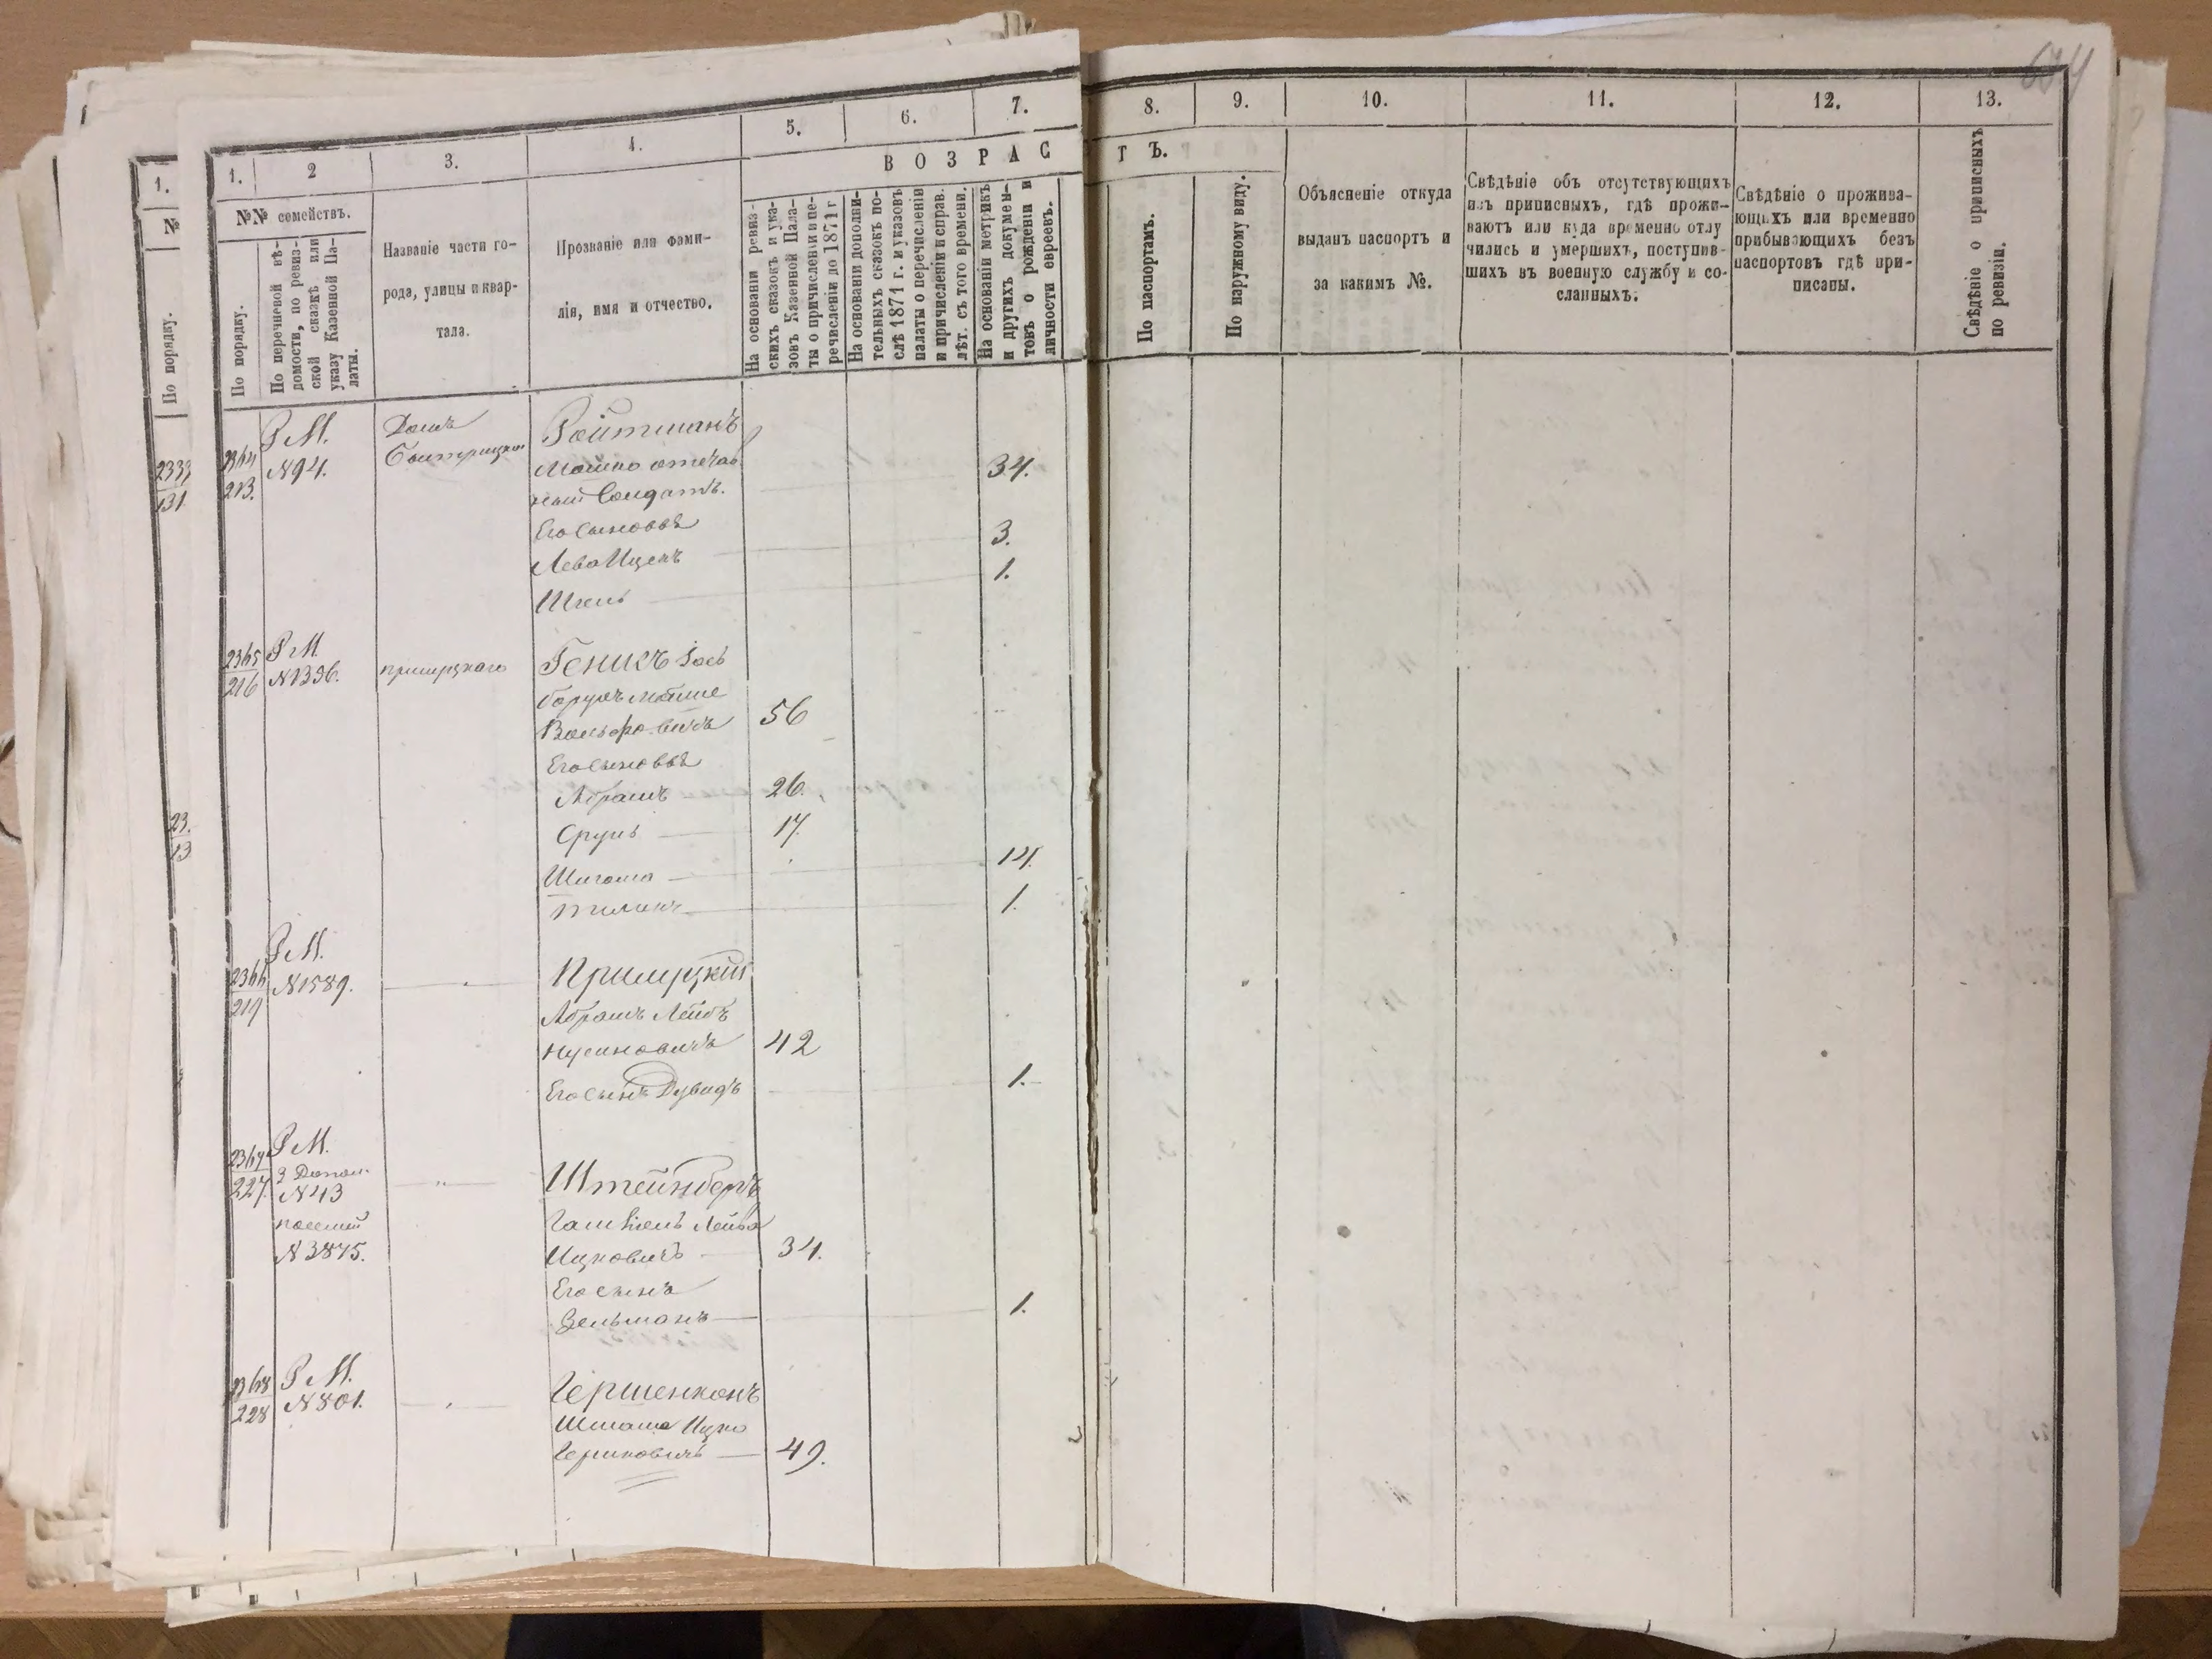 1.
№
По порядку.
2333
131
23.
13
1.
2
3.
4.
5.
6.
7.
8.
9.
10.
11.
12.
13.
В О З Р А С Т Ъ.
№№ семействъ.
По порядку.
По перечневой вѣ-
домости, по ревиз-
ской сказкѣ или
указу Казенной Па-
латы.
Названіе части го-
рода, улицы и квар-
тала.
Прозваніе или фами-
лія, имя и отчество.
На основаніи ревиз-
скихъ сказокъ и ука-
зовъ Казенной Пала-
ты о причисленіи и пе-
речисленіи до 1871 г
На основаніи дополни-
тельныхъ сказокъ по-
слѣ 1871 г. и указовъ
палаты о перечисленіи
и причисленіи и справ.
лѣт. съ того времени.
На основаніи метрикъ
и другихъ докумен-
товъ о рожденіи и
личности евреевъ.
По паспортамъ.
По наружному виду.
Объясненіе откуда
выданъ паспортъ и
за какимъ №.
Свѣдѣніе объ отсутствующихъ
изъ приписныхъ, гдѣ прожи-
ваютъ или куда временно отлу
чились и умершихъ, поступив-
шихъ въ военную службу и со-
сланныхъ.
Свѣдѣніе о прожива-
ющихъ или временно
прибывающихъ безъ
паспортовъ гдѣ при-
писаны.
Свѣдѣніе о приписныхъ
по ревизіи.
Р М.
Домъ
Ройтманъ
213.
N 94.
Мошко отстав
34.
ный Солдатъ.
Его Сыновья
3.
Лейба Ицекъ
1.
Р М.
216
N 1396.
прилуцкаго
Геникъ Іось
Борухъ Мойше
Вольфовичъ
56
Его Сыновья
Абрамъ
26.
Сруль
17.
Шлома
14.
1.
Р М.
N 1589.
Прилуцкій
Абрамъ Лейбъ
Нусиновичъ
42
Его Сынъ Дувидъ
1.
Р М.
227.
N 43
Штейнбергъ
N 3875.
Ицковичъ
34.
Его сынъ
Зельманъ
1.
Р М.
228
N 801.
Гершенконъ
Шлома Ицко
Гершковичъ
49.